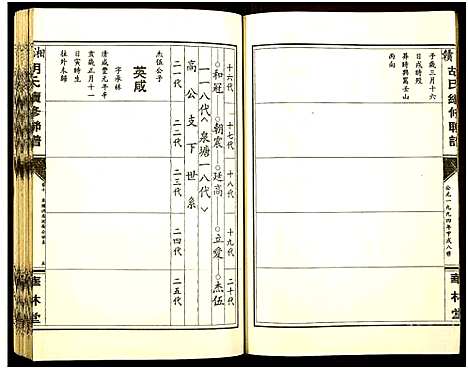 胡氏續修聯譜
公元一九九四年甲戌八修
華林堂
子歲三月十六
日戌時歿
壬山
丙向
十六代 十七代 十八代 十九代 二十代
○和冠——○朝震——○廷高——○立愛——○杰伍
一一八代<泉塘一八代>
高公支下世系
二一代 二二代 二三代 二四代 二五代
英咸
杰伍公子
字承林
清咸豐元年辛
亥歲正月十一
日寅時生
往外未歸
湘胡氏續修聯譜
華林堂